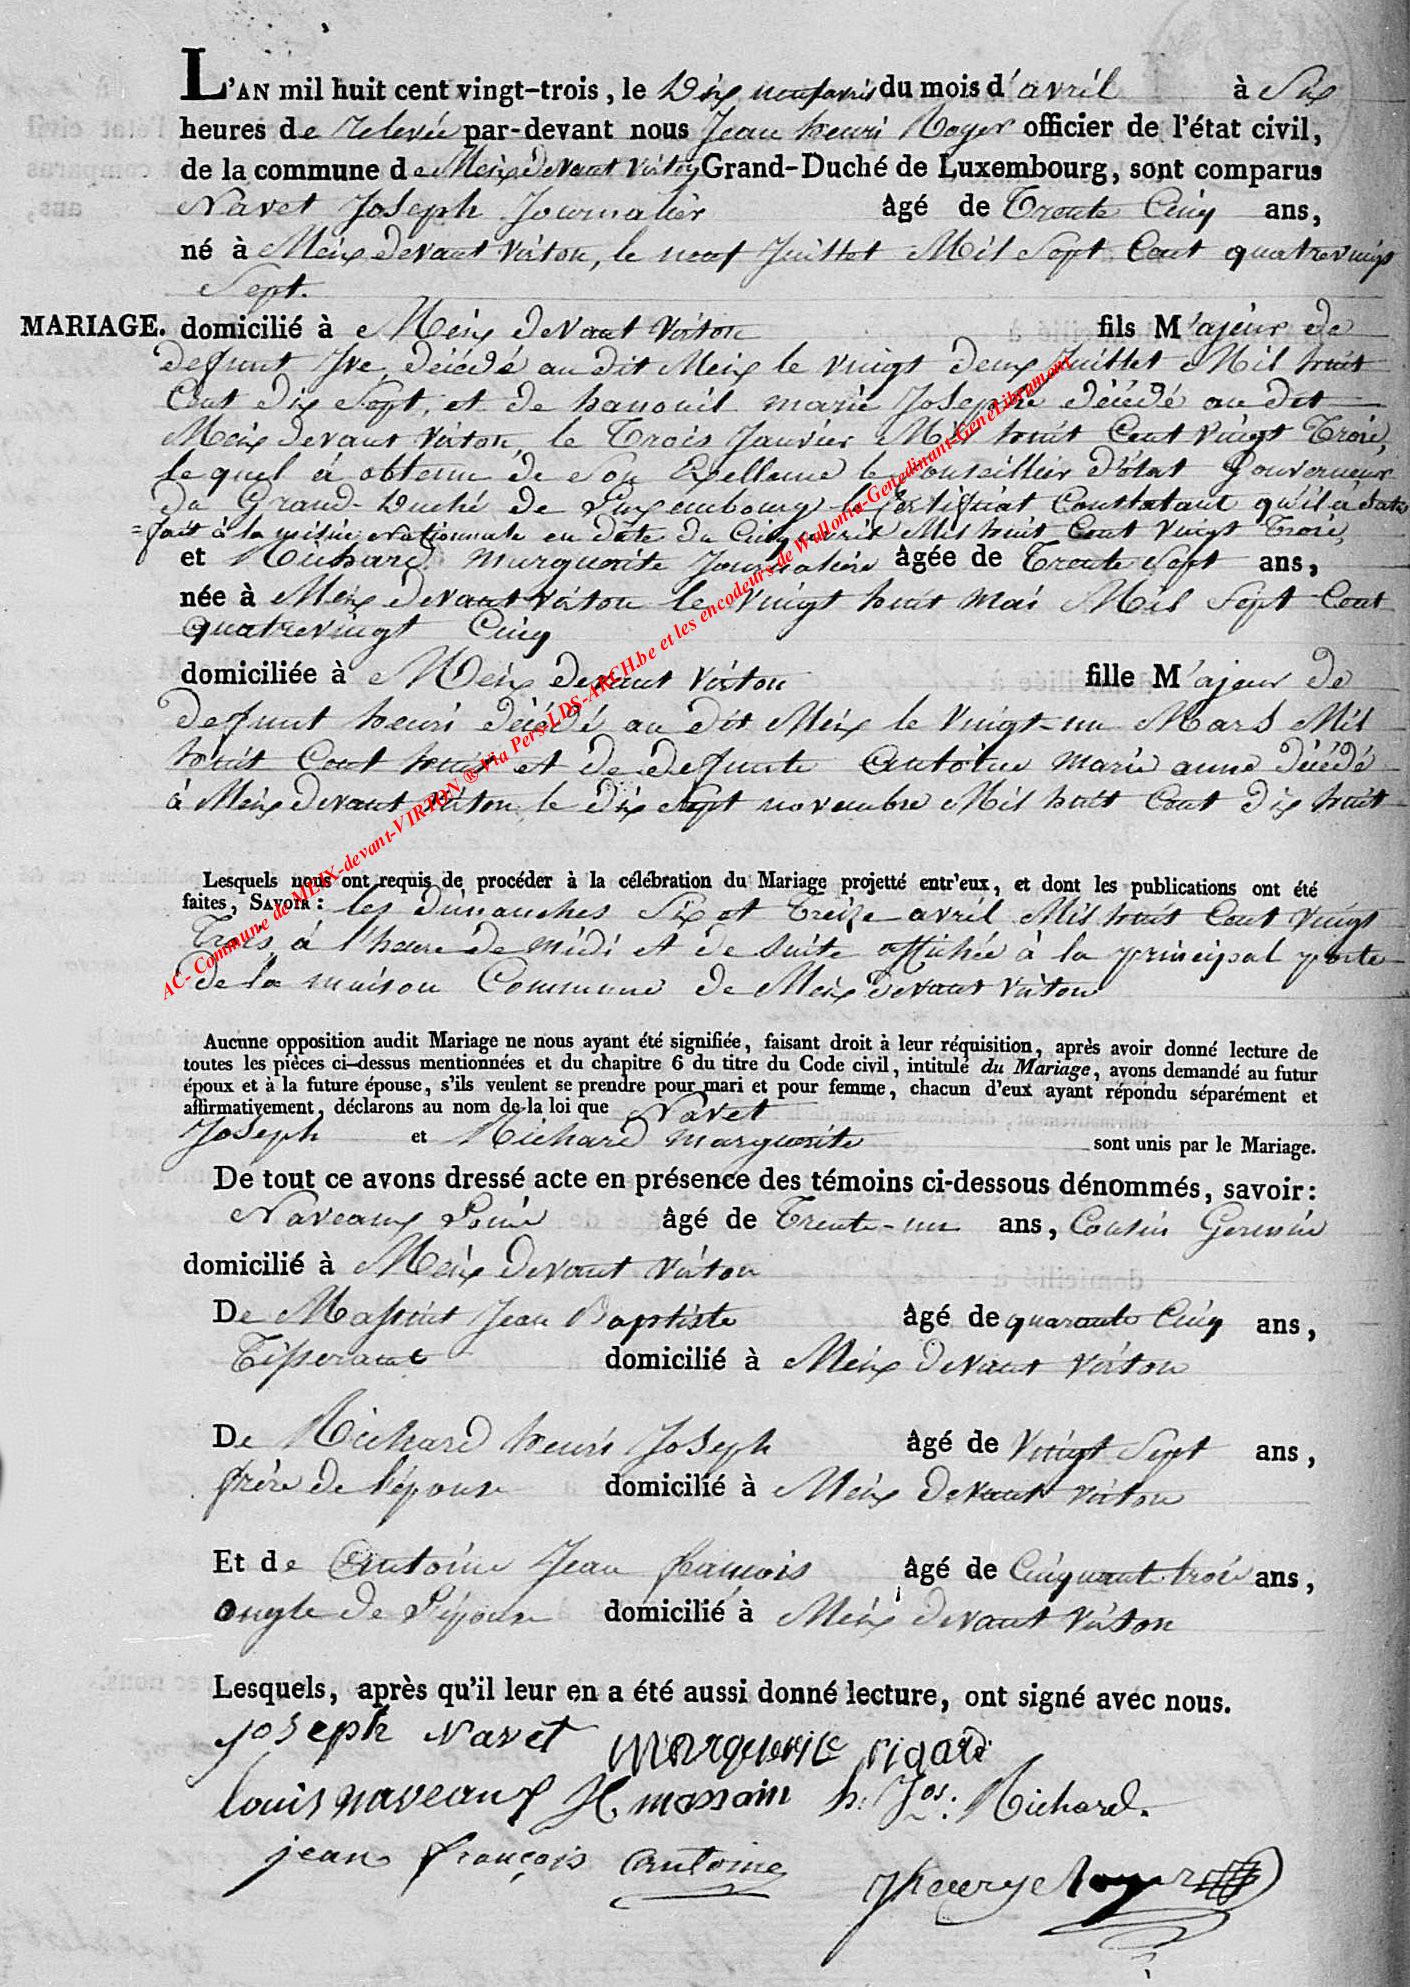 L'AN mil huit cent vingt-trois, le Dix neuf du mois d'avril à Six
heures de relevée par-devant nous Jean henri Royer officier de l'état civil,
de la commune de Meix devant virton Grand-Duché de Luxembourg, sont comparus
Navet Joseph Journalier âgé de Trente Cinq ans,
né à Meix devant virton, le neuf Juillet Mil Sept Cent quatrevingt
Sept.
MARIAGE. domicilié à Meix devant virton fils M'ajeur de
defunt Yve décédé au dit Meix le vingt deux Juillet Mil huit
Cent dix Sept, et de hanouil marie Josephe décédé au dit
Meix devant virton, le Trois Janvier Mil huit Cent vingt Trois,
lequel à obtenu de Son Exellence le Conseillier d'état Gouverneur
du Grand-Duché de Luxembourg le Certificat Constatant qu'il à Satis
=fait à la milice nationnale en date du Cinq avril Mil huit Cent vingt Trois,
et Richard marguerite Journaliere âgée de Trente Sept ans,
née à Meix devant virton le vingt huit mai Mil Sept Cent
quatrevingt Cinq
domiciliée à Meix devant virton fille M'ajeur de
defunt henri décédé au dit Meix le vingt-un Mars Mil
huit Cent huit et de defunte Antoine marie anne décédé
à Meix devant virton le dix Sept novembre Mil huit Cent dix huit
Lesquels nous ont requis de procéder à la célébration du Mariage projetté entr'eux, et dont les publications ont été
faites, SAVOIR: les dimanches Six et Treize avril Mil huit Cent vingt
Trois à l'heure de midi et de suite affichée à la principal porte
de la maison Commune de Meix devant virton
Aucune opposition audit Mariage ne nous ayant été signifiée, faisant droit à leur réquisition, après avoir donné lecture de
toutes les pièces ci-dessus mentionnées et du chapitre 6 du titre du Code civil, intitulé du Mariage, avons demandé au futur
époux et à la future épouse, s'ils veulent se prendre pour mari et pour femme, chacun d'eux ayant répondu séparément et
affirmativement, déclarons au nom de la loi que Navet
Joseph et Richard marguerite sont unis par le Mariage.
De tout ce avons dressé acte en présence des témoins ci-dessous dénommés, savoir:
Naveaux Louis âgé de Trente-un ans, Cousin Germain
domicilié à Meix devant virton
De Massint Jean Baptiste âgé de quarante Cinq ans,
Tisserant domicilié à Meix devant virton
De Richard henri Joseph âgé de Vingt Sept ans,
frère de l'épouse domicilié à Meix devant virton
Et de Antoine Jean francois âgé de Cinquante trois ans,
ongle de l'épouse domicilié à Meix devant virton
Lesquels, après qu'il leur en a été aussi donné lecture, ont signé avec nous.
joseph navet marguerite rigard
louis naveaux massain h: Jos: Richard.
jean françois antoine
AC- Commune de MEIX-devant-VIRTON ® Via Pers-LDS-ARCH.be et les encodeurs de Wallonia-Genedinant-GeneLibramont